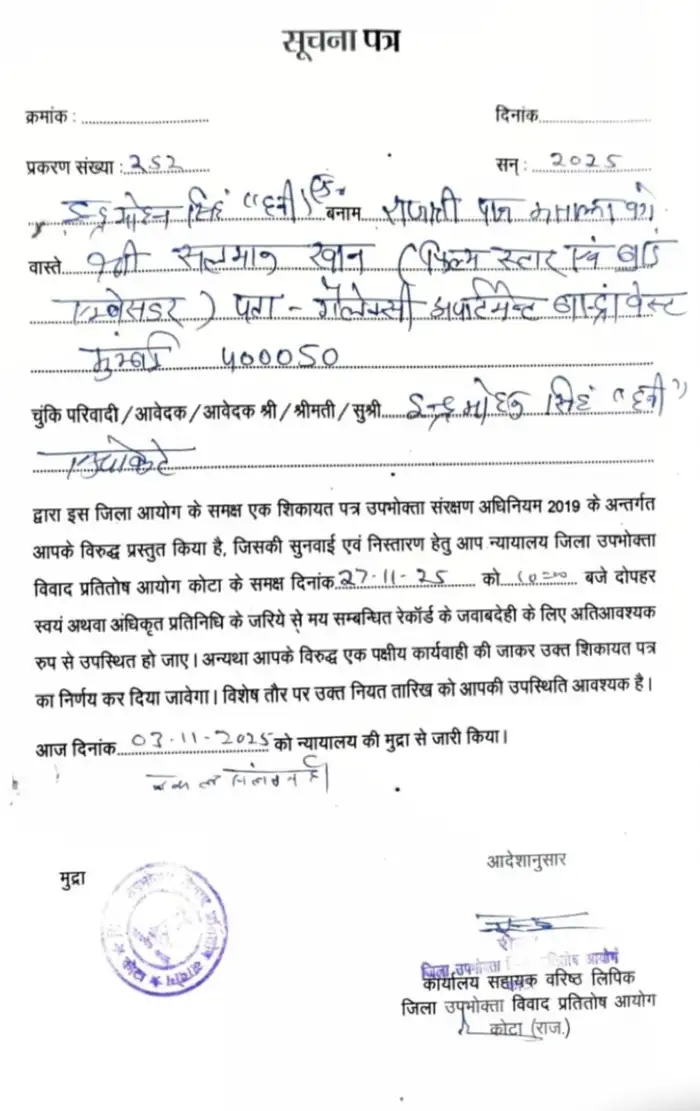 सूचना पत्र
क्रमांक : ........................ दिनांक........................
प्रकरण संख्या : 252 सन् : 2025
इन्द्र मोहन सिंह "हनी" बनाम राजश्री पान मसाला
वास्ते श्री सलमान खान (फिल्म स्टार एवं ब्रांड
एम्बेसडर) पता - गैलेक्सी अपार्टमेन्ट बान्द्रा वेस्ट
मुंम्बई 400050
चुंकि परिवादी/आवेदक/आवेदक श्री/श्रीमती/सुश्री इन्द्र मोहन सिंह "हनी"
एडवोकेट
द्वारा इस जिला आयोग के समक्ष एक शिकायत पत्र उपभोक्ता संरक्षण अधिनियम 2019 के अन्तर्गत
आपके विरुद्ध प्रस्तुत किया है, जिसकी सुनवाई एवं निस्तारण हेतु आप न्यायालय जिला उपभोक्ता
विवाद प्रतितोष आयोग कोटा के समक्ष दिनांक 27-11-25 को 10=00 बजे दोपहर
स्वयं अथवा अधिकृत प्रतिनिधि के जरिये से मय सम्बन्धित रेकोर्ड के जवाबदेही के लिए अतिआवश्यक
रुप से उपस्थित हो जाए। अन्यथा आपके विरुद्ध एक पक्षीय कार्यवाही की जाकर उक्त शिकायत पत्र
का निर्णय कर दिया जावेगा। विशेष तौर पर उक्त नियत तारिख को आपकी उपस्थिति आवश्यक है।
आज दिनांक 03-11-2025 को न्यायालय की मुद्रा से जारी किया।
संलग्न है।
आदेशानुसार
मुद्रा
जिला उपभोक्ता प्रतितोष आयोग
कार्यालय सहायक वरिष्ठ लिपिक
जिला उपभोक्ता विवाद प्रतितोष आयोग
कोटा (राज.)